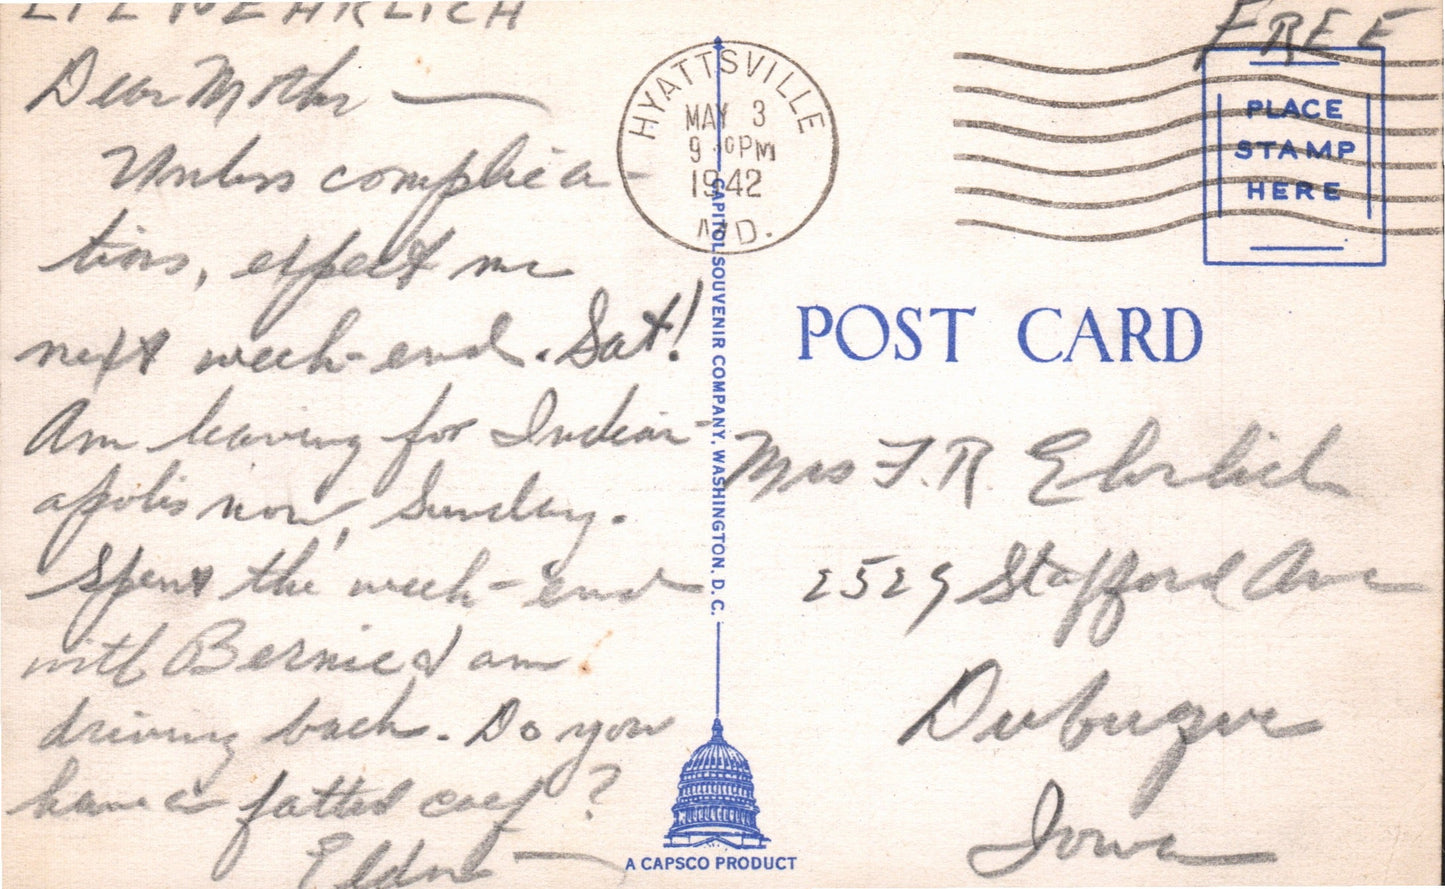 EHRLICH
FREE
Dear Mother —
Unless complica-
tions, expect me
next week-end. Sat!
Am leaving for Indian-
apolis now, Sunday.
Spent the week-end
with Bernie & am
driving back. Do you
have a fatted calf?
HYATTSVILLE
MAY 3
9 PM
1942
MD.
PLACE
STAMP
HERE
POST CARD
CAPITOL SOUVENIR COMPANY, WASHINGTON, D. C.
Mrs F. R. Ehrlich
2529 Stafford Ave
Dubuque
Iowa
A CAPSCO PRODUCT